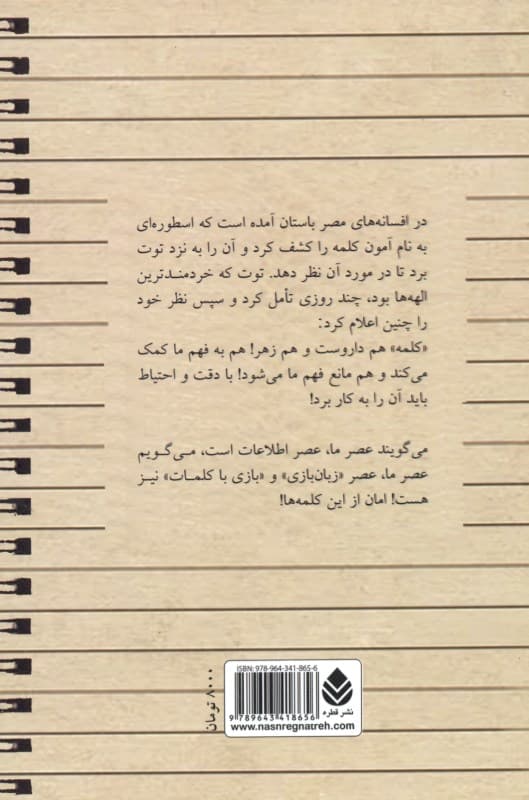 در افسانه‌های مصر باستان آمده است که اسطوره‌ای
به نام آمون کلمه را کشف کرد و آن را به نزد توت
برد تا در مورد آن نظر دهد. توت که خردمندترین
الهه‌ها بود، چند روزی تأمل کرد و سپس نظر خود
را چنین اعلام کرد:
«کلمه» هم داروست و هم زهر! هم به فهم ما کمک
می‌کند و هم مانع فهم ما می‌شود! با دقت و احتیاط
باید آن را به کار برد!
می‌گویند عصر ما، عصر اطلاعات است، می‌گویم
عصر ما، عصر «زبان‌بازی» و «بازی با کلمات» نیز
هست! امان از این کلمه‌ها!
ISBN: 978-964-341-865-6
9 789643 418656
نشر قطره
www.nasnregnatreh.com
۸۰۰۰ تومان